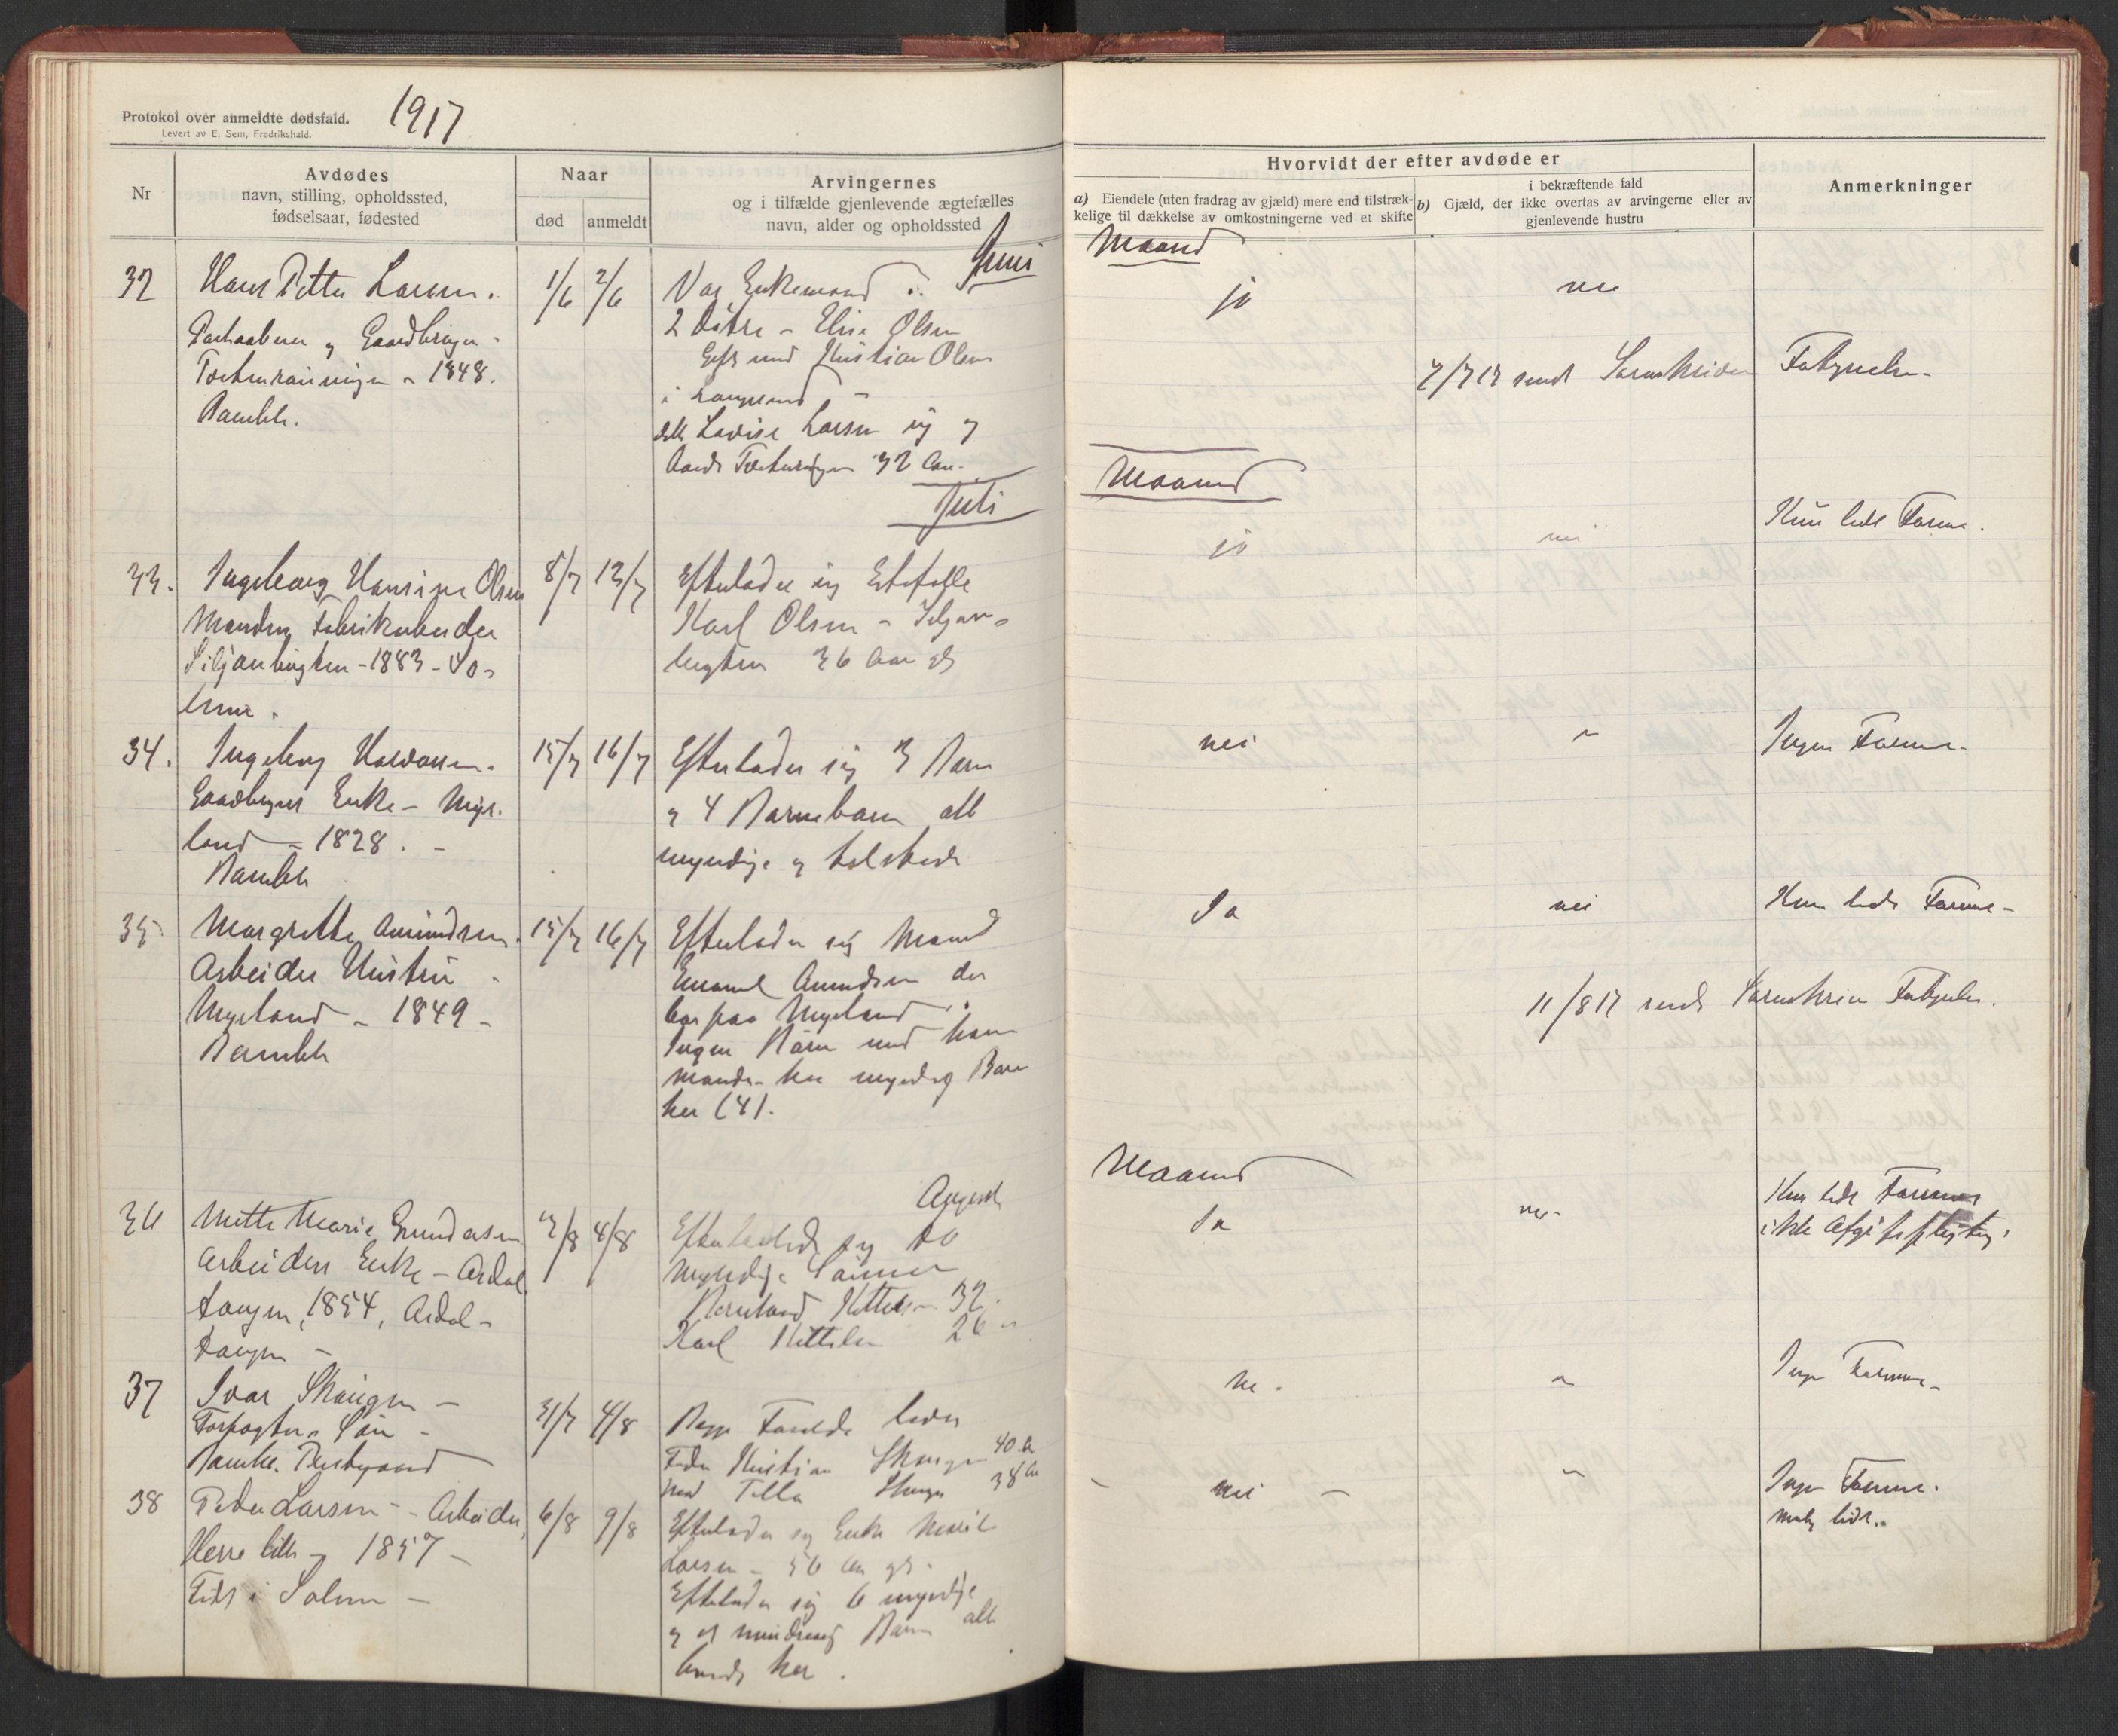 Protokol over anmeldte dødsfald.
Levert av E. Sem, Fredrikshald.
1917
Nr
Avdødes
navn, stilling, opholdssted,
fødselsaar, fødested
Naar
død
anmeldt
Arvingernes
og i tilfælde gjenlevende ægtefælles
navn, alder og opholdssted
Hvorvidt der efter avdøde er
a) Eiendele (uten fradrag av gjæld) mere end tilstræk-
kelige til dækkelse av omkostningerne ved et skifte
i bekræftende fald
b) Gjæld, der ikke overtas av arvingerne eller av
gjenlevende hustru
Anmerkninger
Juni
Maaned
32
Hans Petter Larsen.
og Gaardbruger -
1848.
Bamble.
1/6
2/6
Var Enkemand
2 Døtre - Elise Olsen
Gift med Kristian Olsen
i Langesund -
Lovise Larsen og
32 Aar.
ja
nei
7/7 17 sendt Sorenskriver
Juli
Maaned
33.
Ingeborg Hansine Olsen
Manden Fabrikarbeider
Siljanbugten - 1883 - So-
lum.
8/7
13/7
Efterlader sig Ektefelle
Karl Olsen - Siljan-
bugten 36 Aar gl
ja
nei
Kun lidt Formue.
34.
Ingeborg Halvorsen.
Gaardbrugers Enke - Myr-
land - 1828. -
Bamble
15/7
16/7
Efterlader sig 3 Barn
og 4 Barnebarn alle
myndige og tilstede
nei
"
Ingen Formue.
35.
Margrethe Amundsen.
Arbeider Hustru -
Myrland - 1849 -
Bamble
15/7
16/7
Efterlader sig Mand
Amundsen der
bor paa Myrland.
Ingen Barn med ham
myndig Barn
her (4).
Ja
nei
Kun lidt Formue -
11/8 17 sendt Sorenskriver
August
Maaned
36
Mette Marie Gundersen
Arbeiders Enke - Ardal
tangen, 1854, Ardal-
tangen -
3/8
4/8
Efterlader sig to
Myndige Sønner
Kittelsen 32.
Karl Kittelsen 26 "
Ja
nei -
Kun lidt Formue
ikke Afgiftspligtig.
37
Ivar Skaugen -
Forpagters Søn -
Bamble Prestegaard
31/7
4/8
Begge Foreldre lever
Fader Kristian Skaugen 40 A
Mod Tilla Skaugen 38 A
nei.
"
Ingen Formue -
38
Peder Larsen - Arbeider,
Herre - 1857 -
Født i Solum -
6/8
9/8
Efterlader sig Enke
Larsen - 56 Aar gl.
Efterlader sig 6 myndige
og et mindreaarig Barn alle
her.
- nei -
"
Ingen Formue.
meget lidt.